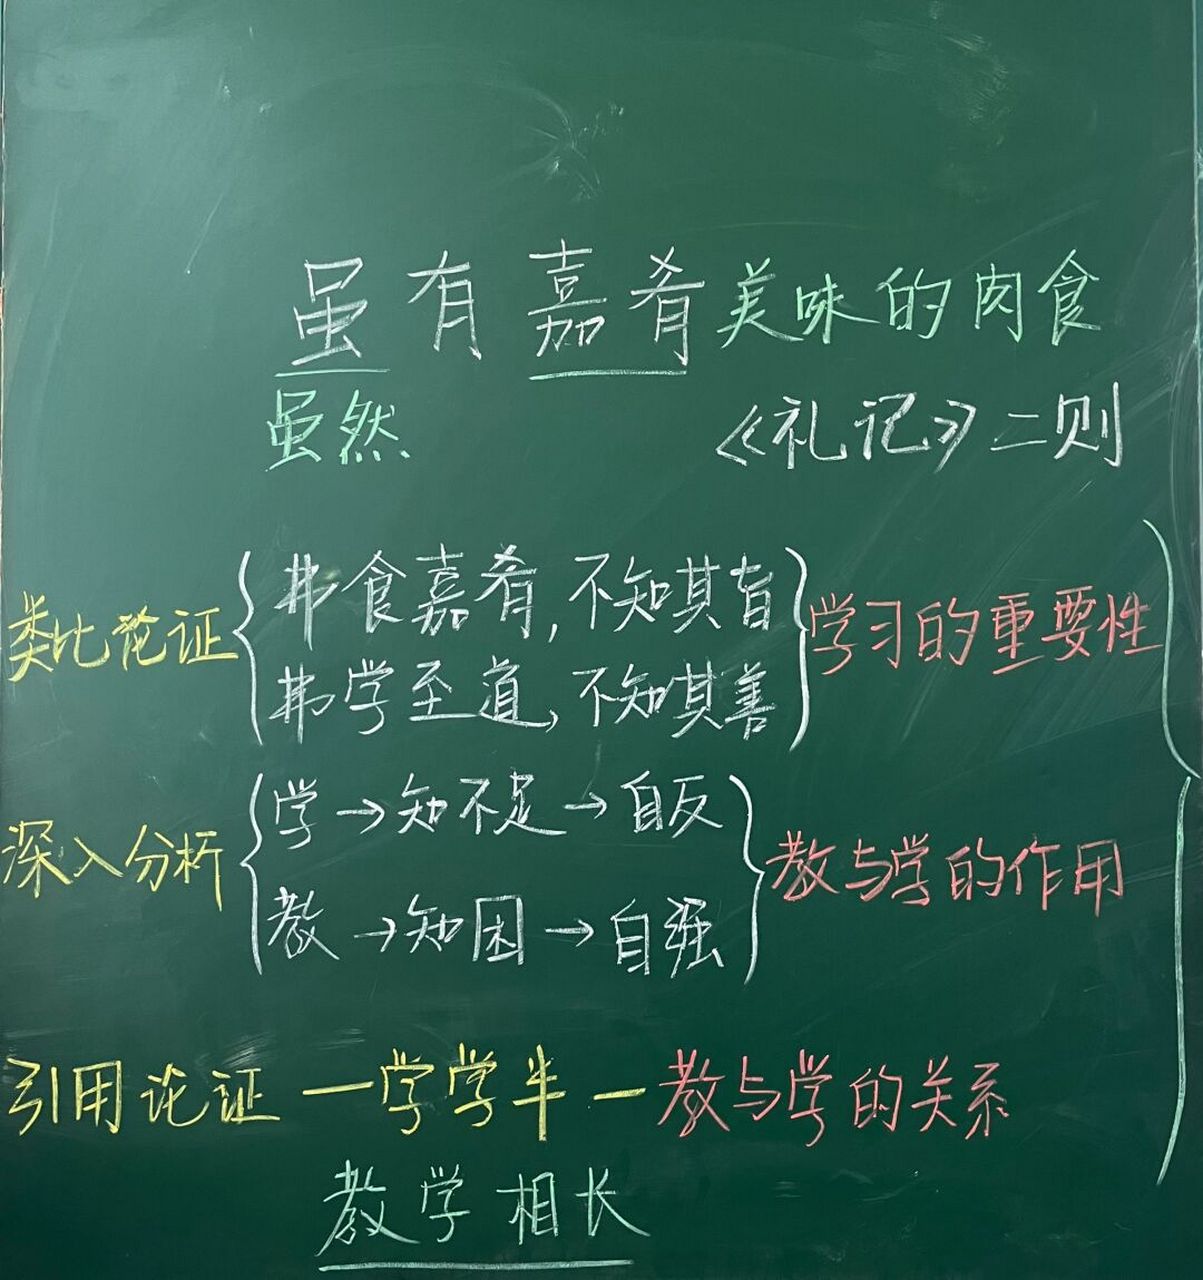 虽有嘉肴 美味的肉食
虽然 《礼记》二则
类比论证 弗食嘉肴,不知其旨 学习的重要性
弗学至道,不知其善
深入分析 学→知不足→自反 教与学的作用
教→知困→自强
引用论证—学学半—教与学的关系
教学相长